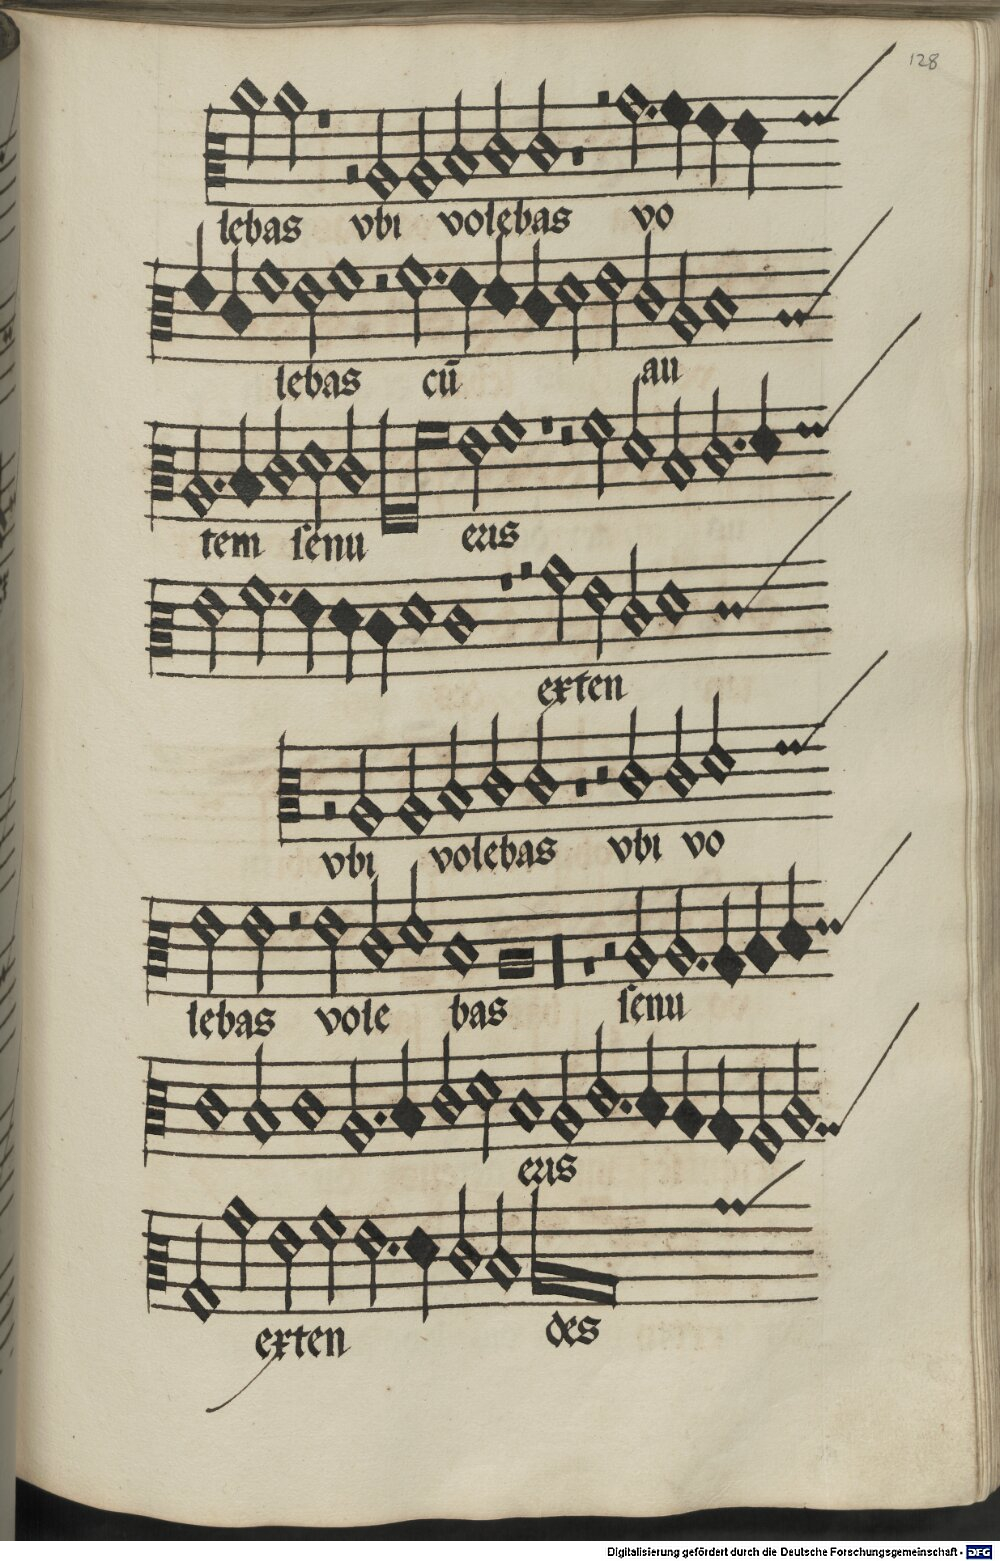 128
lebas vbi volebas vo
lebas cū au
tem senu eris
exten
vbi volebas vbi vo
lebas vole bas senu
eris
exten des
Digitalisierung gefördert durch die Deutsche Forschungsgemeinschaft - DFG